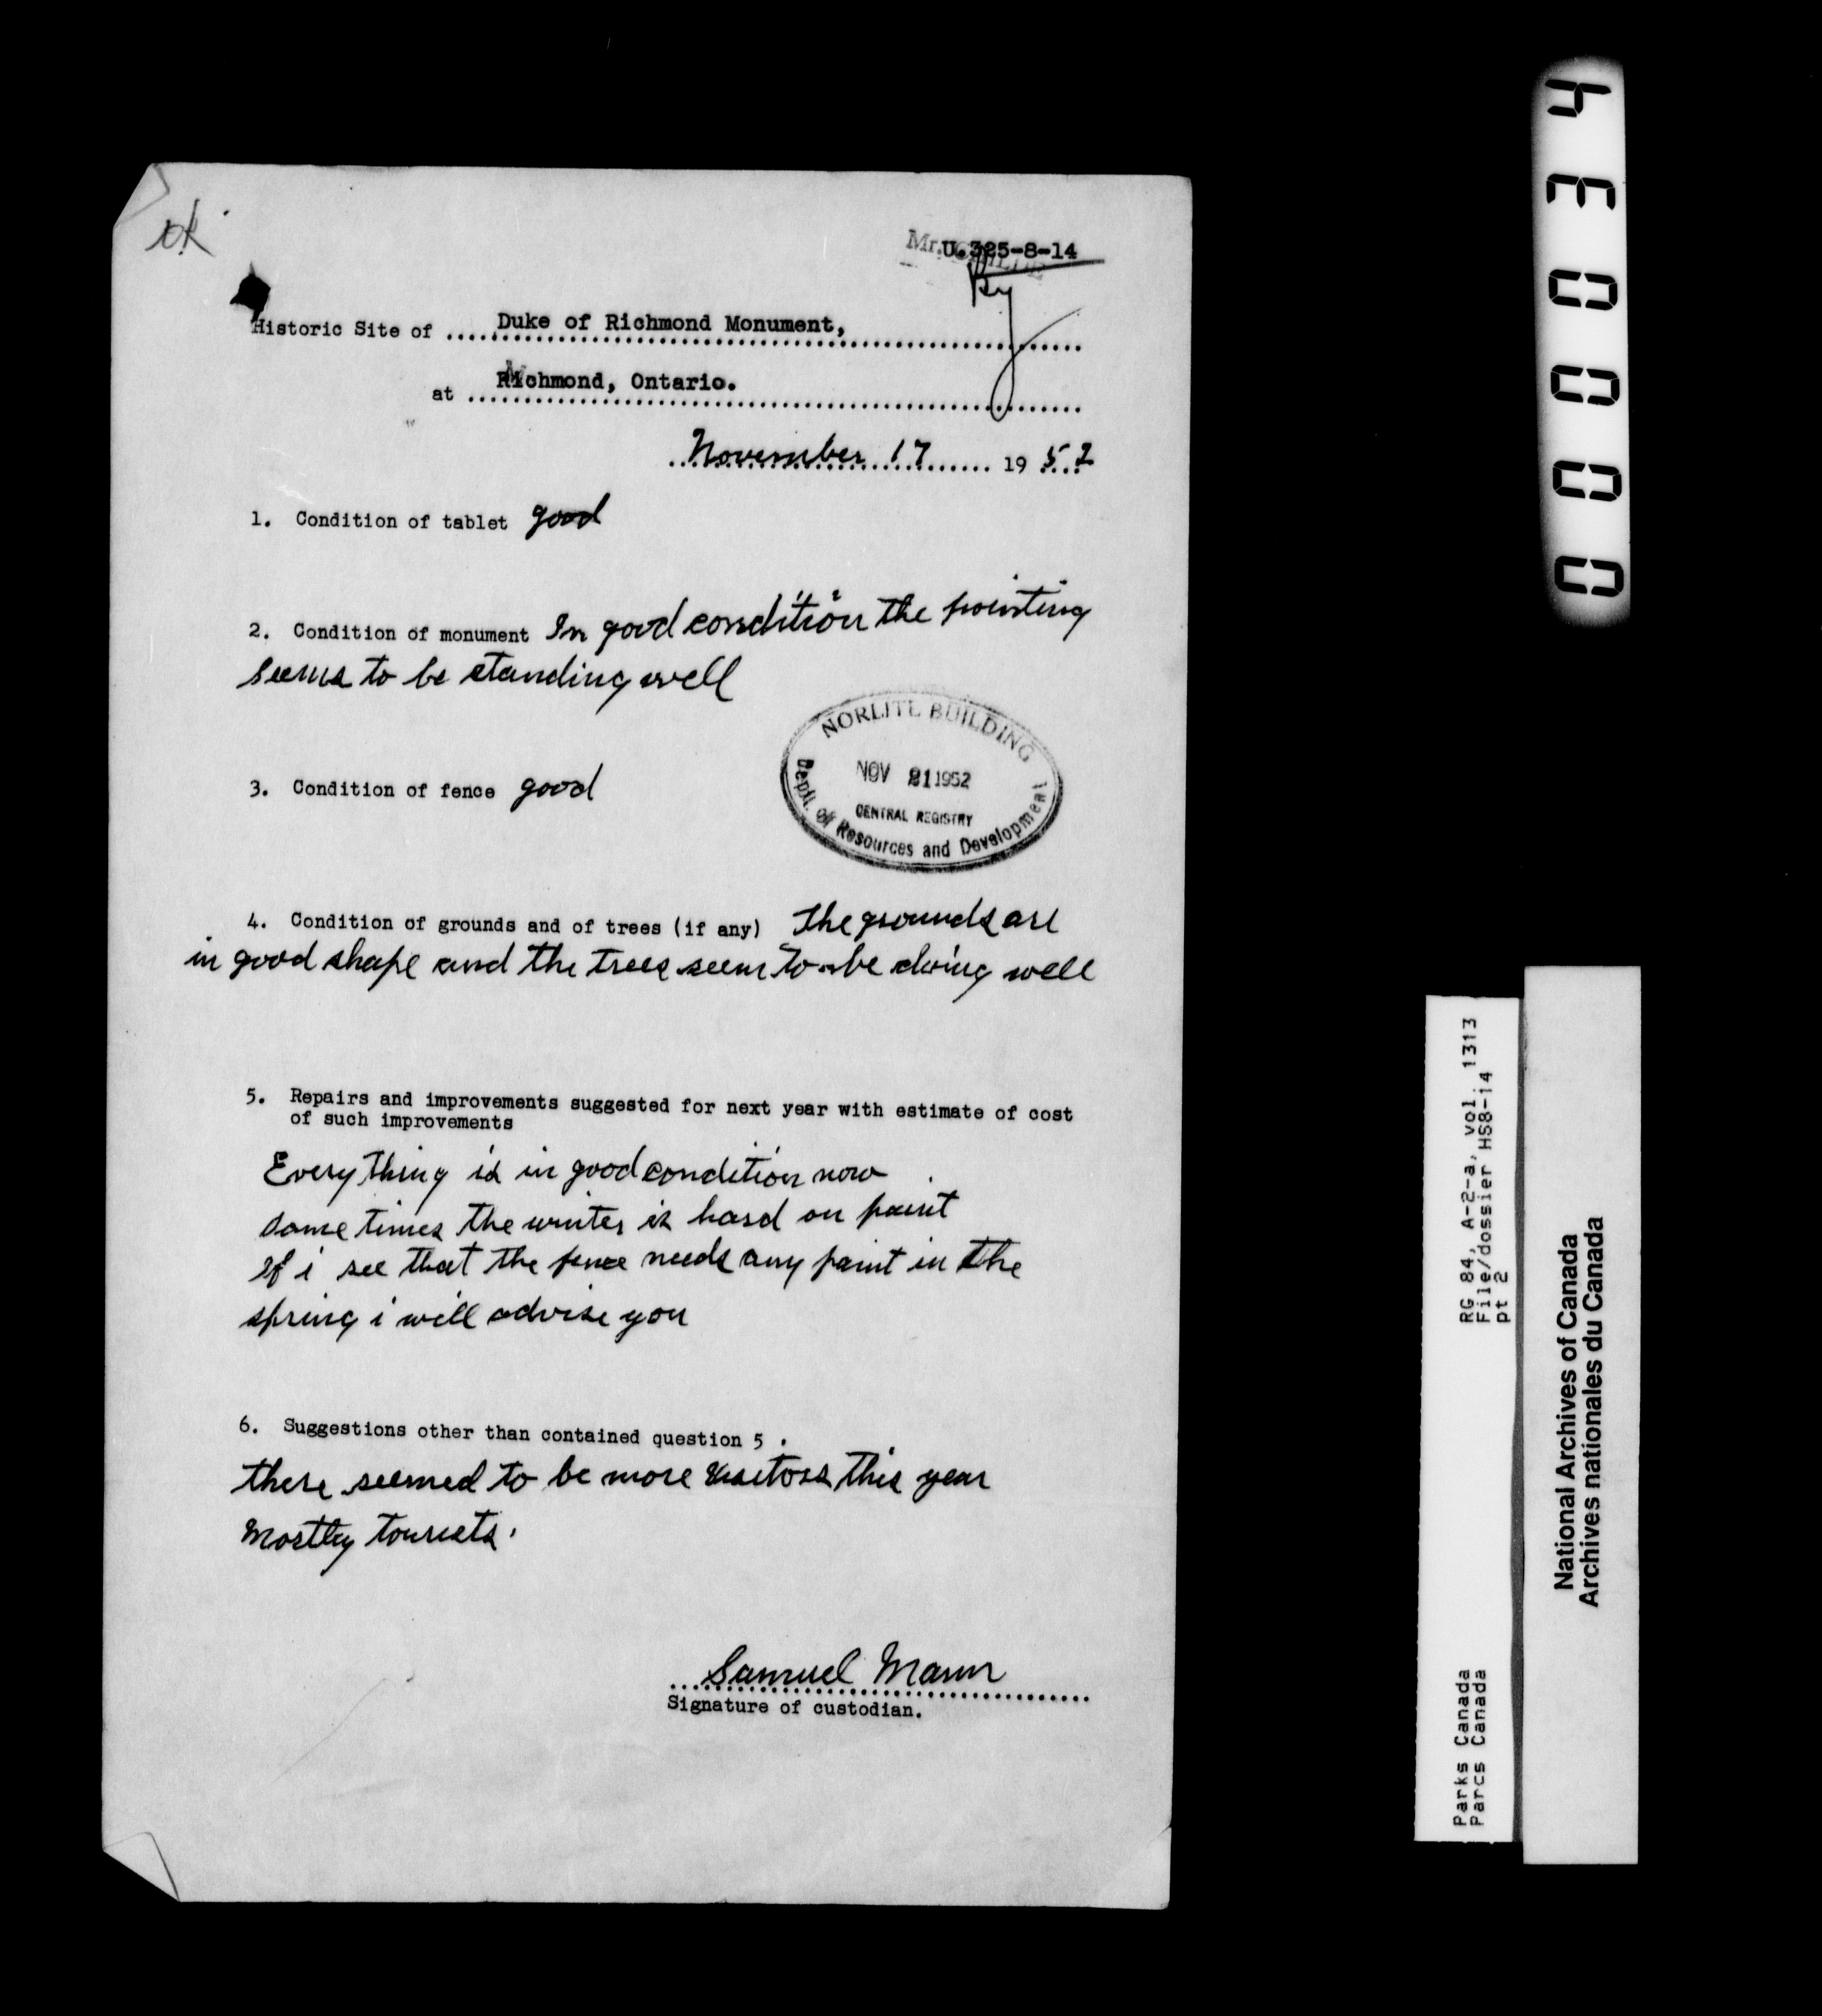 ok
Mr. Childe
U.325-8-14
Historic Site of ..... Duke of Richmond Monument,
at ..... Richmond, Ontario.
November 17 19 52
1. Condition of tablet good
2. Condition of monument In good condition the pointing
seems to be standing well
NORLITE BUILDING
NOV 21 1952
CENTRAL REGISTRY
Dept. of Resources and Development
3. Condition of fence good
4. Condition of grounds and of trees (if any) The grounds are
in good shape and the trees seem to be doing well
5. Repairs and improvements suggested for next year with estimate of cost
of such improvements
Every thing is in good condition now
some times the winter is hard on paint
If i see that the fence needs any paint in the
spring i will advise you
6. Suggestions other than contained question 5 .
there seemed to be more visitors this year
mostly tourists.
Samuel Mann
Signature of custodian.
430000
RG 84, A-2-a, vol. 1313
File/dossier HS8-14
pt 2
Parks Canada
Parcs Canada
National Archives of Canada
Archives nationales du Canada